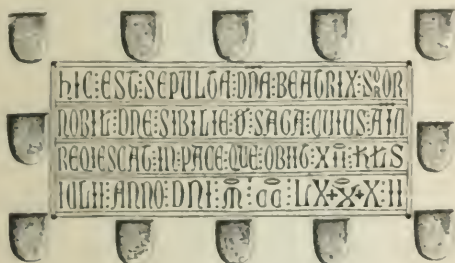 hIC:EST:SEPULTA:DNA:BEATRIX:SOROR
NOBIL:DNE:SIBILIE:D:SAGA:CUIUS:AIA
REQIESCAT:IN:PACE:QUE:OBIIT:XII:KLS
IULII:ANNO:DNI:M:CC:LX+X+X:II